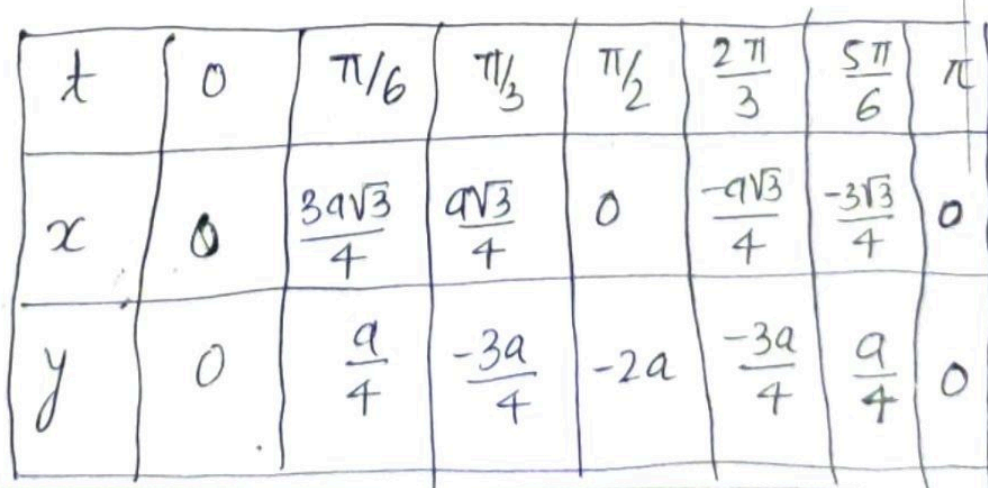 t 0 π/6 π/3 π/2 2π/3 5π/6 π
x 0 3a√3/4 a√3/4 0 -a√3/4 -3√3/4 0
y 0 a/4 -3a/4 -2a -3a/4 a/4 0